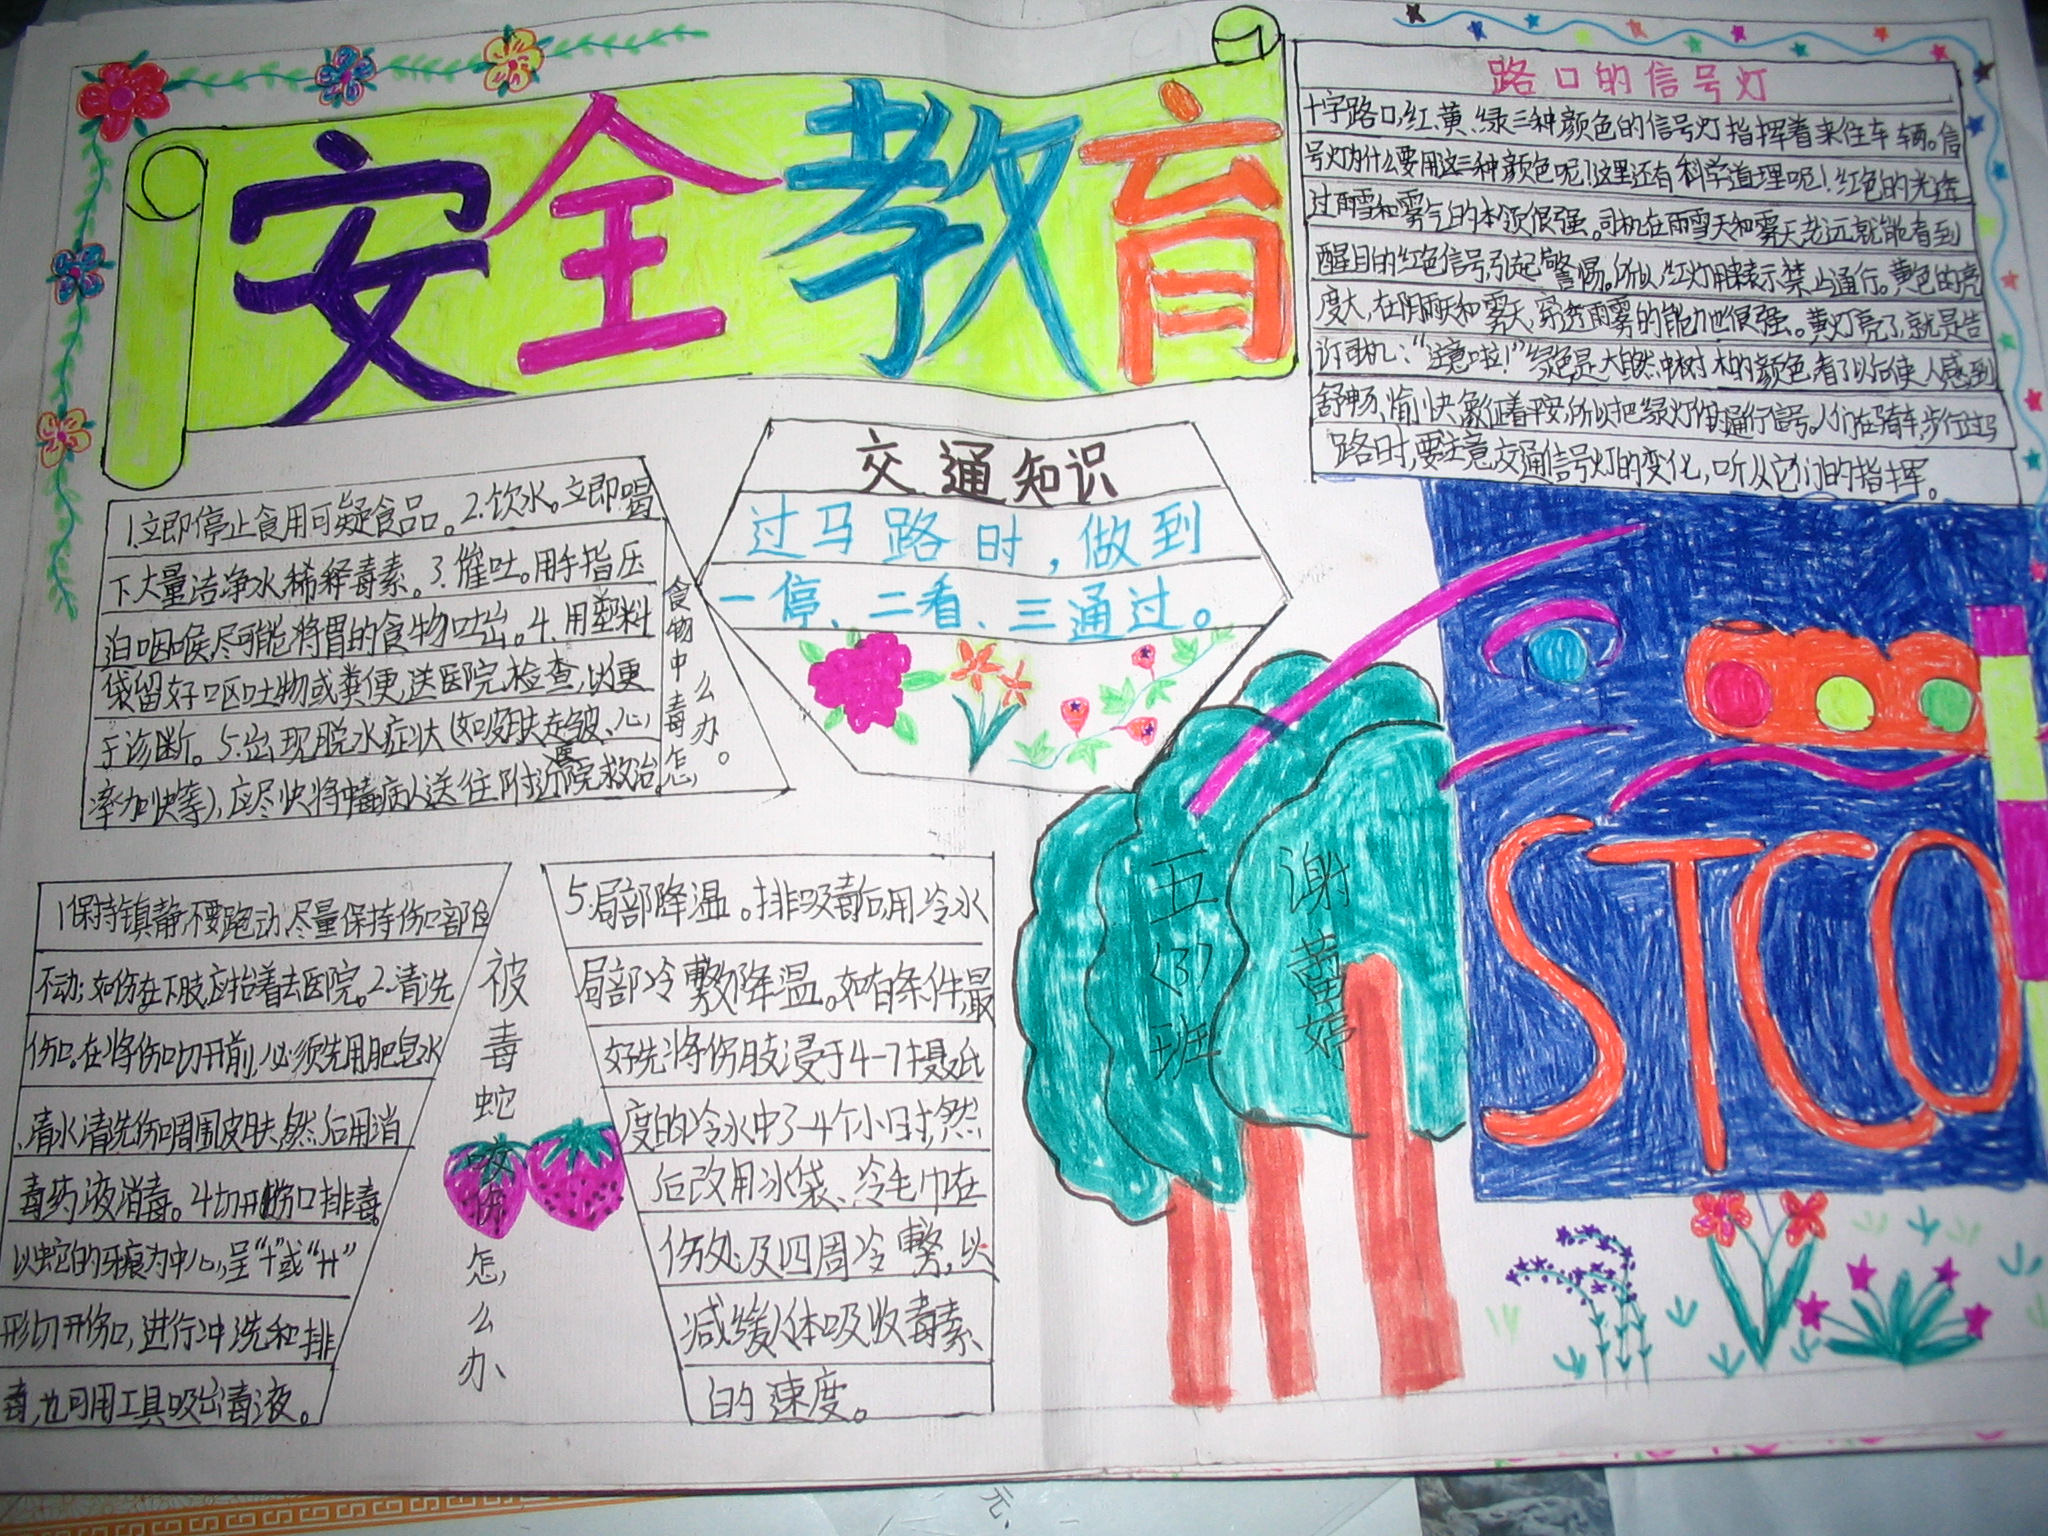 安全教育
路口的信号灯
十字路口,红、黄、绿三种颜色的信号灯指挥着来住车辆。信
号灯为什么要用这三种颜色呢!这里还有科学道理呢!红色的光透
过雨雪和雾气的本领很强。司机在雨雪天和雾天老远就能看到
醒目的红色信号,引起警惕。所以,红灯用来表示禁止通行。黄色的亮
度大,在阴雨天和雾天,穿透雨雾的能力也很强。黄灯亮了,就是告
诉司机:“注意啦!”绿色是大自然中树木的颜色,看了以后使人感到
舒畅、愉快,象征着平安,所以把绿灯作通行信号。人们在骑车,步行过马
路时,要注意交通信号灯的变化,听从它们的指挥。
交通知识
过马路时,做到
一停、二看、三通过。
食物中毒怎么办。
1.立即停止食用可疑食品。2.饮水。立即喝
下大量洁净水,稀释毒素。3.催吐。用手指压
迫咽喉,尽可能将胃的食物吐出。4.用塑料
袋留好呕吐物或粪便,送医院检查,以便
于诊断。5.出现脱水症状(如皮肤起皱、心
率加快等),应尽快将中毒病人送往附近医院救治。
被毒蛇咬伤怎么办
1保持镇静,不要跑动,尽量保持伤口部自
不动;如伤在下肢,应抬着去医院。2.清洗
伤口。在将伤口切开前,必须先用肥皂水
、清水清洗伤口周围皮肤,然后用消
毒药液消毒。4切开伤口排毒。
以蛇的牙痕为中心,呈“十”或“艹”
形切开伤口,进行冲洗和排
毒,也可用工具吸出毒液。
5.局部降温。排吸毒后,用冷水
局部冷敷降温。如有条件,最
好先将伤肢浸于4-7摄氏
度的冷水中3-4个小时,然
后改用冰袋、冷毛巾在
伤处及四周冷敷,以
减缓人体吸收毒素
的速度。
五(3)班
谢蕾婷
STCO
元、